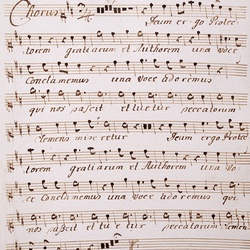 Chorus Jcum ergo Protec
torem gratiarum et Authorem una voce
Conclamemus una voce adoremus
qui nos pascit et tuetur peccatorum
clemens miseretur Jcum ergo Protec
torem gratiarum et Authorem una vo
ce Conclamemus una voce adoremus qui
nos pascit et tuetur peccatorum clemens